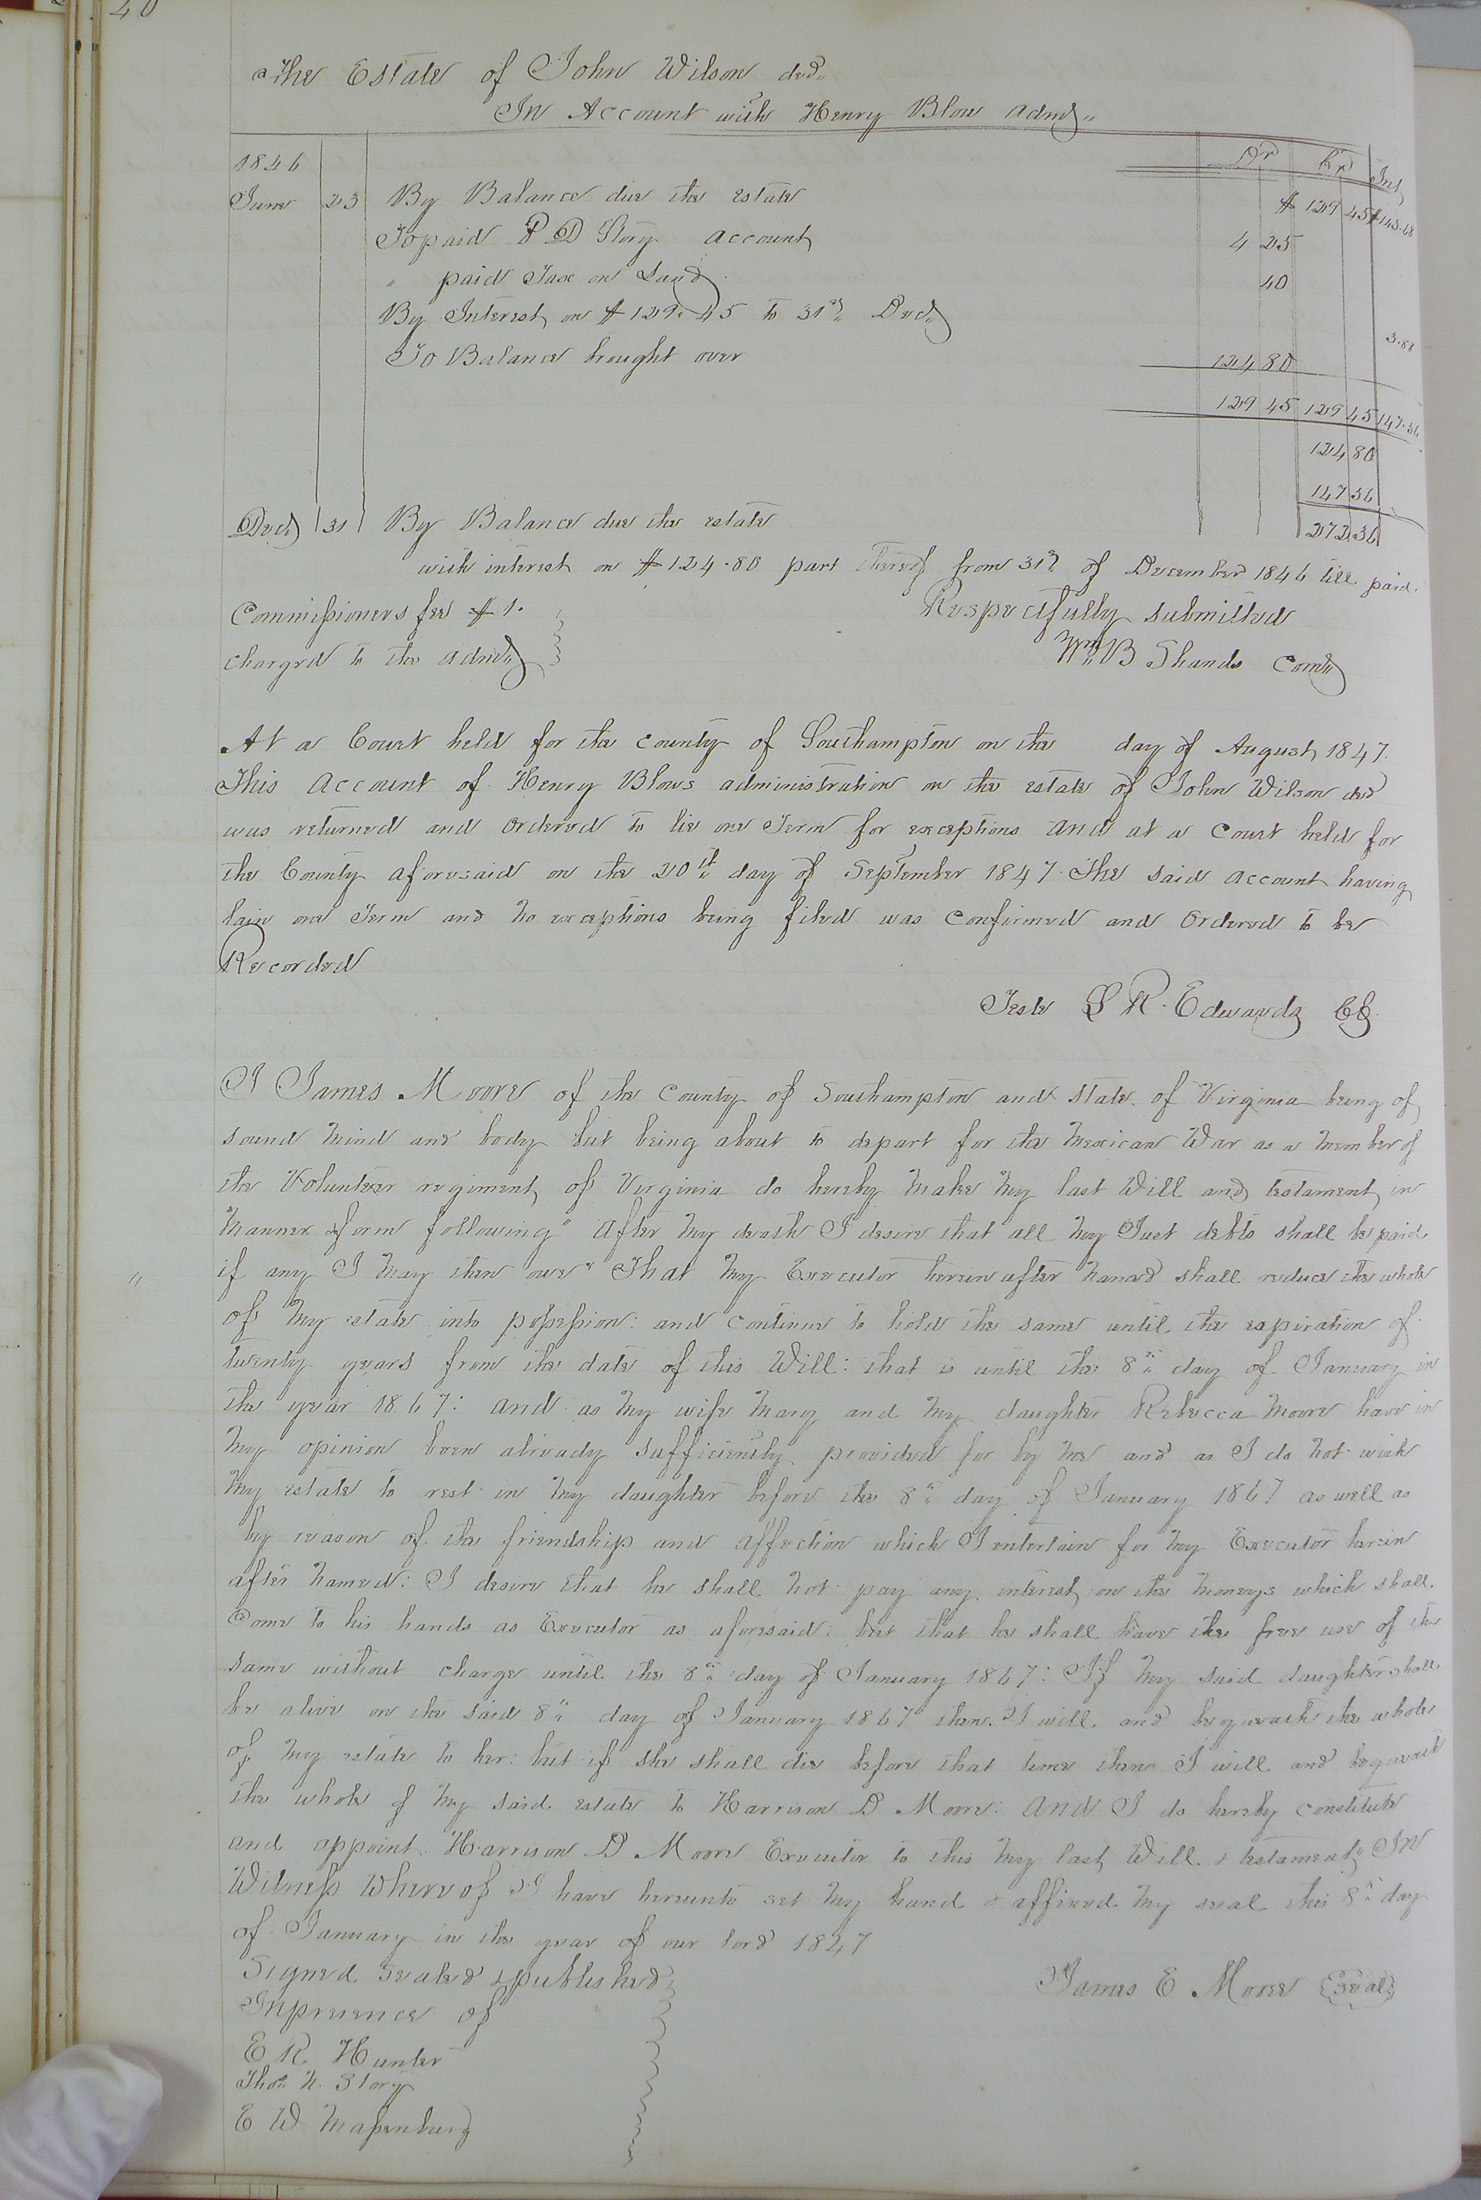 40
The Estate of John Wilson decd.
In Account with Henry Blow Admr.
1846 Dr Cr Int
June 23 By Balance due the estate $ 129 45 $143.68
To paid P D Story account 4 25
" paid Tax on Land 40
By Interest on $129.45 to 31st Decr 3.88
To Balance brought over 124 80
129 45 129 45 147.56
124 80
147 56
Decr 31 By Balance due the estate 272.36
with interest on $124.80 part thereof from 31st of December 1846 till paid.
Commissioners fee $1. Respectfully submitted
charged to the admr Wm B Shands Comr
At a Court held for the county of Southampton on the day of August 1847.
This Account of Henry Blows administration on the estate of John Wilson decd
was returned and ordered to lie one Term for exceptions and at a Court held for
the County aforesaid on the 20th day of September 1847 The said account having
lain one Term and no exceptions being filed was confirmed and ordered to be
Recorded
Teste L R. Edwards CC.
I James Moore of the County of Southampton and State of Virginia being of
sound mind and body but being about to depart for the Mexican War as a member of
the Volunteer regiment of Virginia do hereby make my last Will and testament in
manner & form following" After my death I desire that all my Just debts shall be paid
" if any I may then owe" That my Executor herein after named shall reduce the whole
of my estate into possession: and continue to hold the same until the expiration of
twenty years from the date of this Will: that is until the 8th day of January in
the year 1867: and as my wife Mary and my daughter Rebecca Moore have in
my opinion been already sufficiently provided for by me and as I do not wish
my estate to rest in my daughter before the 8th day of January 1867 as well as
by reason of the friendship and affection which I entertain for my Executor herein
after named: I desire that he shall not pay any interest on the moneys which shall
come to his hands as Executor as aforesaid: but that he shall have the free use of the
same without charge until the 8th day of January 1867: If my said daughter shall
be alive on the said 8th day of January 1867 then I will and bequeath the whole
of my estate to her: but if she shall die before that time then I will and bequeath
the whole of my said estate to Harrison D Moore: And I do hereby constitute
and appoint Harrison D Moore Executor to this my last Will & testament In
Witness whereof I have hereunto set my hand & affixed my seal this 8th day
of January in the year of our lord 1847
Signed sealed & published James E Moore Seal
In presence of
E R. Hunter
Thos. N. Story
E W Massenburg